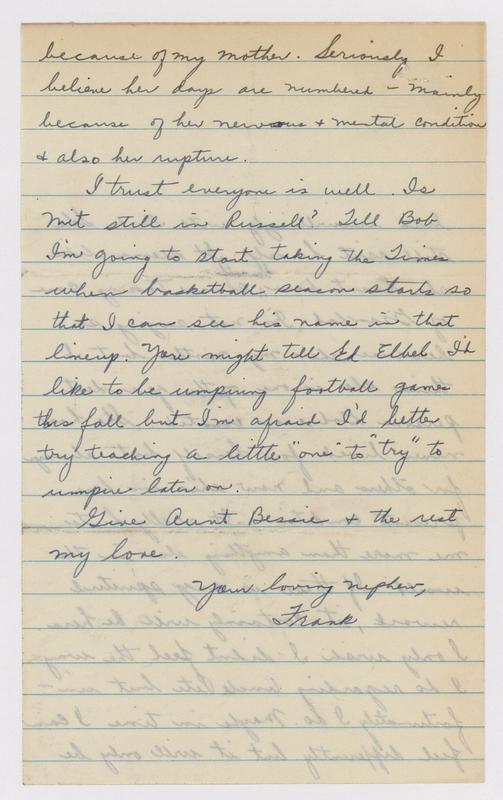 because of my mother. Seriously, I
believe her days are numbered - mainly
because of her nervous + mental condition
+ also her rupture.
I trust everyone is well. Is
Mit still in Russell? Tell Bob
I'm going to start taking the Times
when basketball season starts so
that I can see his name in that
lineup. You might tell Ed Elbel I'd
like to be umpiring football games
this fall but I'm afraid I'd better
try teaching a little "one" to "try" to
umpire later on.
Give Aunt Bessie + the rest
my love.
Your loving nephew,
Frank